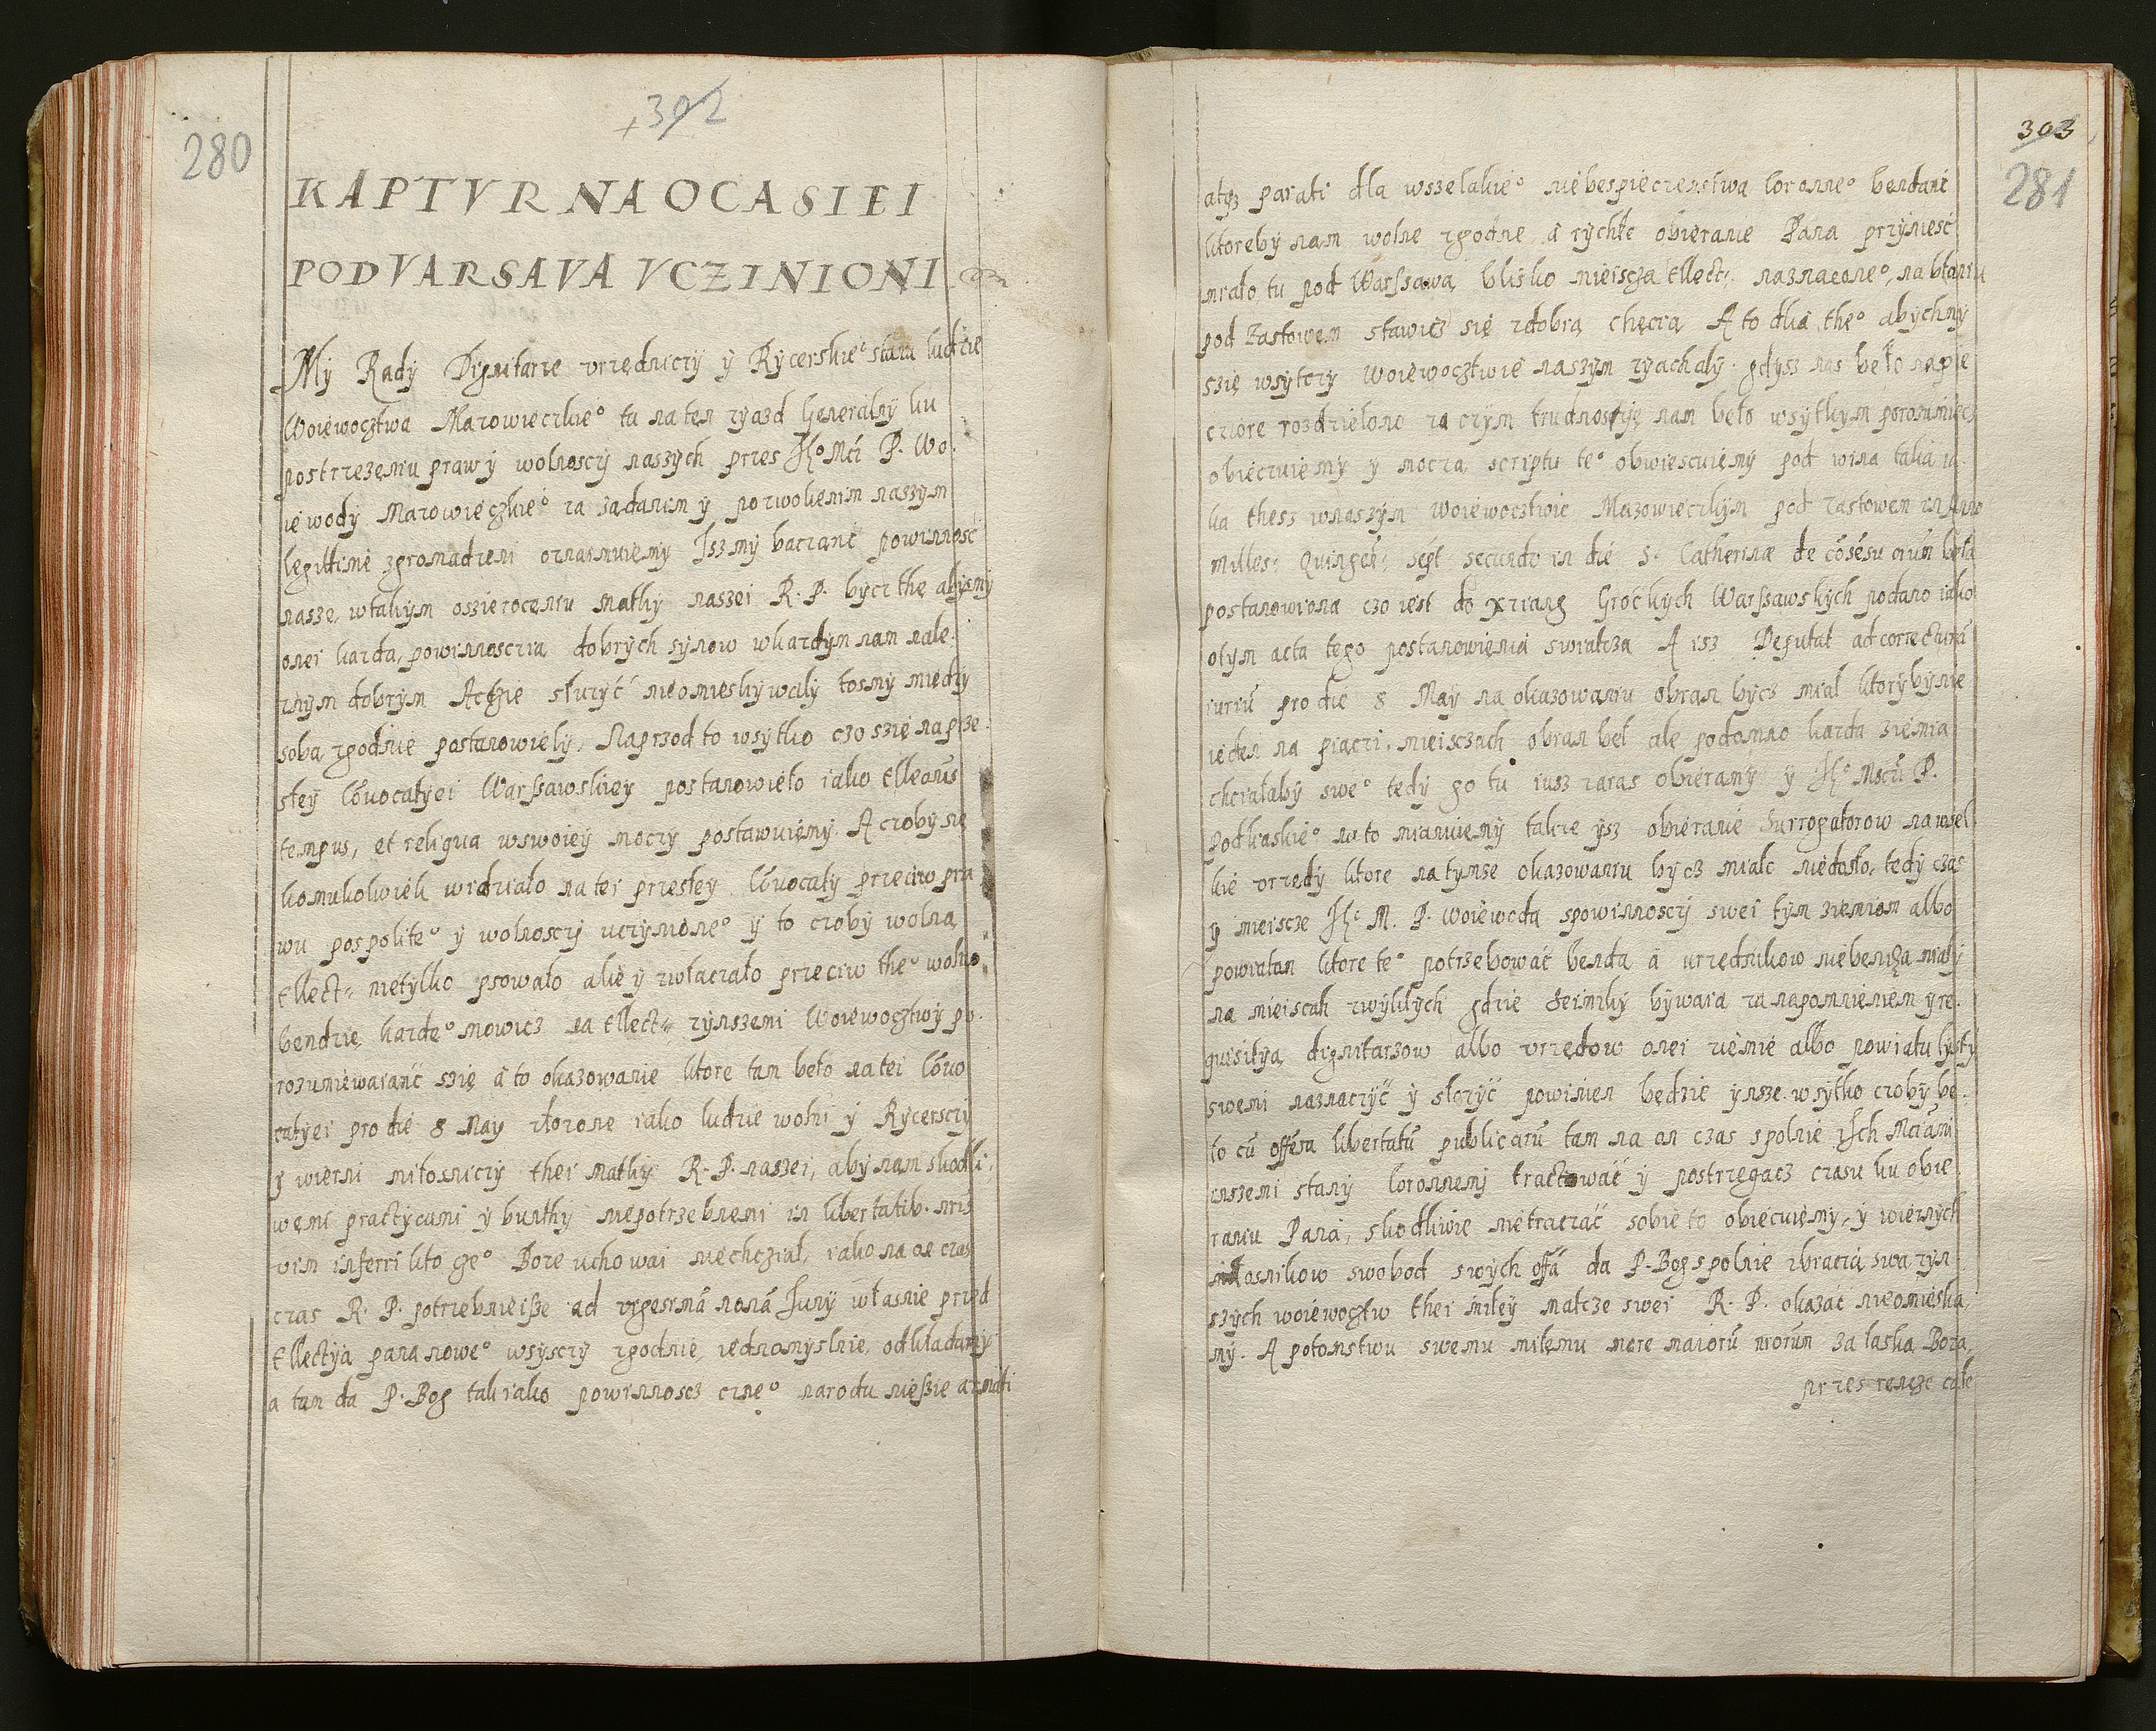 302
280
KAPTVR NA OCASIEI
PODVARSAVA VCZINIONI
My Rady Dignitarze vrzędniczÿ ÿ Rÿcerskie° stanu ludzie
Woiewocztwa Mazowieczkie° tu na ten zÿazd Generalnÿ ku
postrzezeniu praw ÿ wolnosczÿ naszÿch przes Je° Mći P. Wo-
iewodÿ Mazowieczkie° za ządanim ÿ pozwolienim naszÿm
legittime zgromadzeni oznaimuiemÿ Iszmÿ baczanć powinnosć
nasze, wtakÿm oszieroceniu matkÿ naszei R. P. bÿcz the abÿsmÿ
onei kazdą powinnosczią dobrÿch sÿnow wkazdÿm nam nale-
znÿm dobrÿm Aczie słuzÿć nieomieskÿwalÿ tosmÿ miedzÿ
sobą zgodnie postanowielÿ. Naprzod to wsÿtko czo szię na prze-
słeÿ Cōuocatÿei Warssawskieÿ postanowieło iako Ellecnūs
tempus, et reliqua wswoieÿ moczÿ postawuiemÿ. A czobÿ się
komukolwiek widziało na tei przesłeÿ Cōuocatÿ przeciw pra
wu pospolite° ÿ wolnosczÿ uczÿnione° ÿ to czobÿ wolną
Ellect: nietÿlko psowało alie ÿ zwłaczało przeciw the° wolno
bendzie kazde° mowicz na Ellect: zÿnszemi Woiewocztwÿ po-
rozumiewaianć szię á to okazowanie ktore tam beło na tei Cōuo
catÿei pro die 8 Maÿ złozone iako ludzie wolni ÿ Rÿcerscÿ
ÿ wierni miłosniczÿ thei matkÿ R. P. naszei, abÿ nam skodli-
wemi practÿcami ÿ bunthÿ niepotrzebnemi in libertatib. nris
vim inferri kto ze° Boze uchowai niechcział, iako na on czas
czas R. P. potrzebnieisze ad vigesimā nonā Junÿ własnie przed
Ellectÿą pana nowe° wsÿsczÿ zgodnie, iednomÿslnie, odkładamÿ
a tam da P. Bog tak iako powinnoscz czne° narodu niesie armati
303
281
atqz parati dla wszelakie° niebespieczenstwa koronne° bendanć
ktorebÿ nam wolne zgodne á rÿchłe obieranie Pana przÿniesć
miało, tu pod Warssawą blisko mieiscza Ellect: naznaczone°, na błaniu
pod Zastowem stawicz się zdobrą chęcią A to dlia the° abÿchmÿ
szię wsÿtczÿ woiewocztwie naszÿm zÿachalÿ. gdÿsz nas beło na pie
cziore rozdzielono za czÿm trudnoscÿę nam beło wsÿtkÿm porozumiecz
obieczuiemÿ ÿ moczą scriptu te° obwiescuiemÿ pod winą taką ia-
ka thesz wnaszÿm woiewocztwie Mazowieczkÿm pod Zastowem in Anno
Milles: Quinget: sept secundo in die S. Catherinæ de cōsēsu oīum była
postanowiona czo iest do xziang Groćkÿch Warssawskÿch podano iako
otÿm acta tego postanowienia swiatcza A isz Deputat ad correcturā
iuriū pro die 8 Maÿ na okazowaniu obran bÿcz miał ktorÿ bÿ nie
ieden na piaczi mieisczach obran beł ale podomno kazda ziemia
chciałabÿ swe° tedÿ go tu iusz zaras obieramÿ ÿ Je° Msczi P.
Podliaskie° na to mianuiemÿ takze ÿsz obieranie Surrogatorow na wiel
kie vrzędÿ ktore na tÿmże okazowaniu bÿcz miało niedosło, tedÿ czas
ÿ mieiscze Je° M. P. woiewoda spowinnosczÿ swei tÿm ziemiom albo
powiatom ktore te° potrzebować bendą á urzędnikow niebendą miałÿ
na mieiscah zwÿkłÿch gdzie Seimikÿ bÿwaią za napomnieniem ÿ re-
quisitÿą dignitarzow albo vrzędow onei ziemie albo powiatu listÿ
swemi naznaczÿć ÿ słozÿć powinien będzie ÿnsze wsÿtko czobÿ be-
ło cū offēsa libertatū publicarū tam na on czas spolnie Ich Mciámi
inszemi stanÿ koronnemj tractować ÿ postrzegacz czasu ku obie
raniu Pana, skodliwie nietraczać sobie to obiecuiemÿ, ÿ wiernÿch
miłosnikow swobod swÿch offā da P. Bog spolnie zbraczią swą zÿn
szÿch woiewocztw thei miłeÿ matcze swei R. P. okazać nieomieska-
mÿ. A potomstwu swemu miłemu more maiorū nrorum za łaską Bozą
przes rencze całe